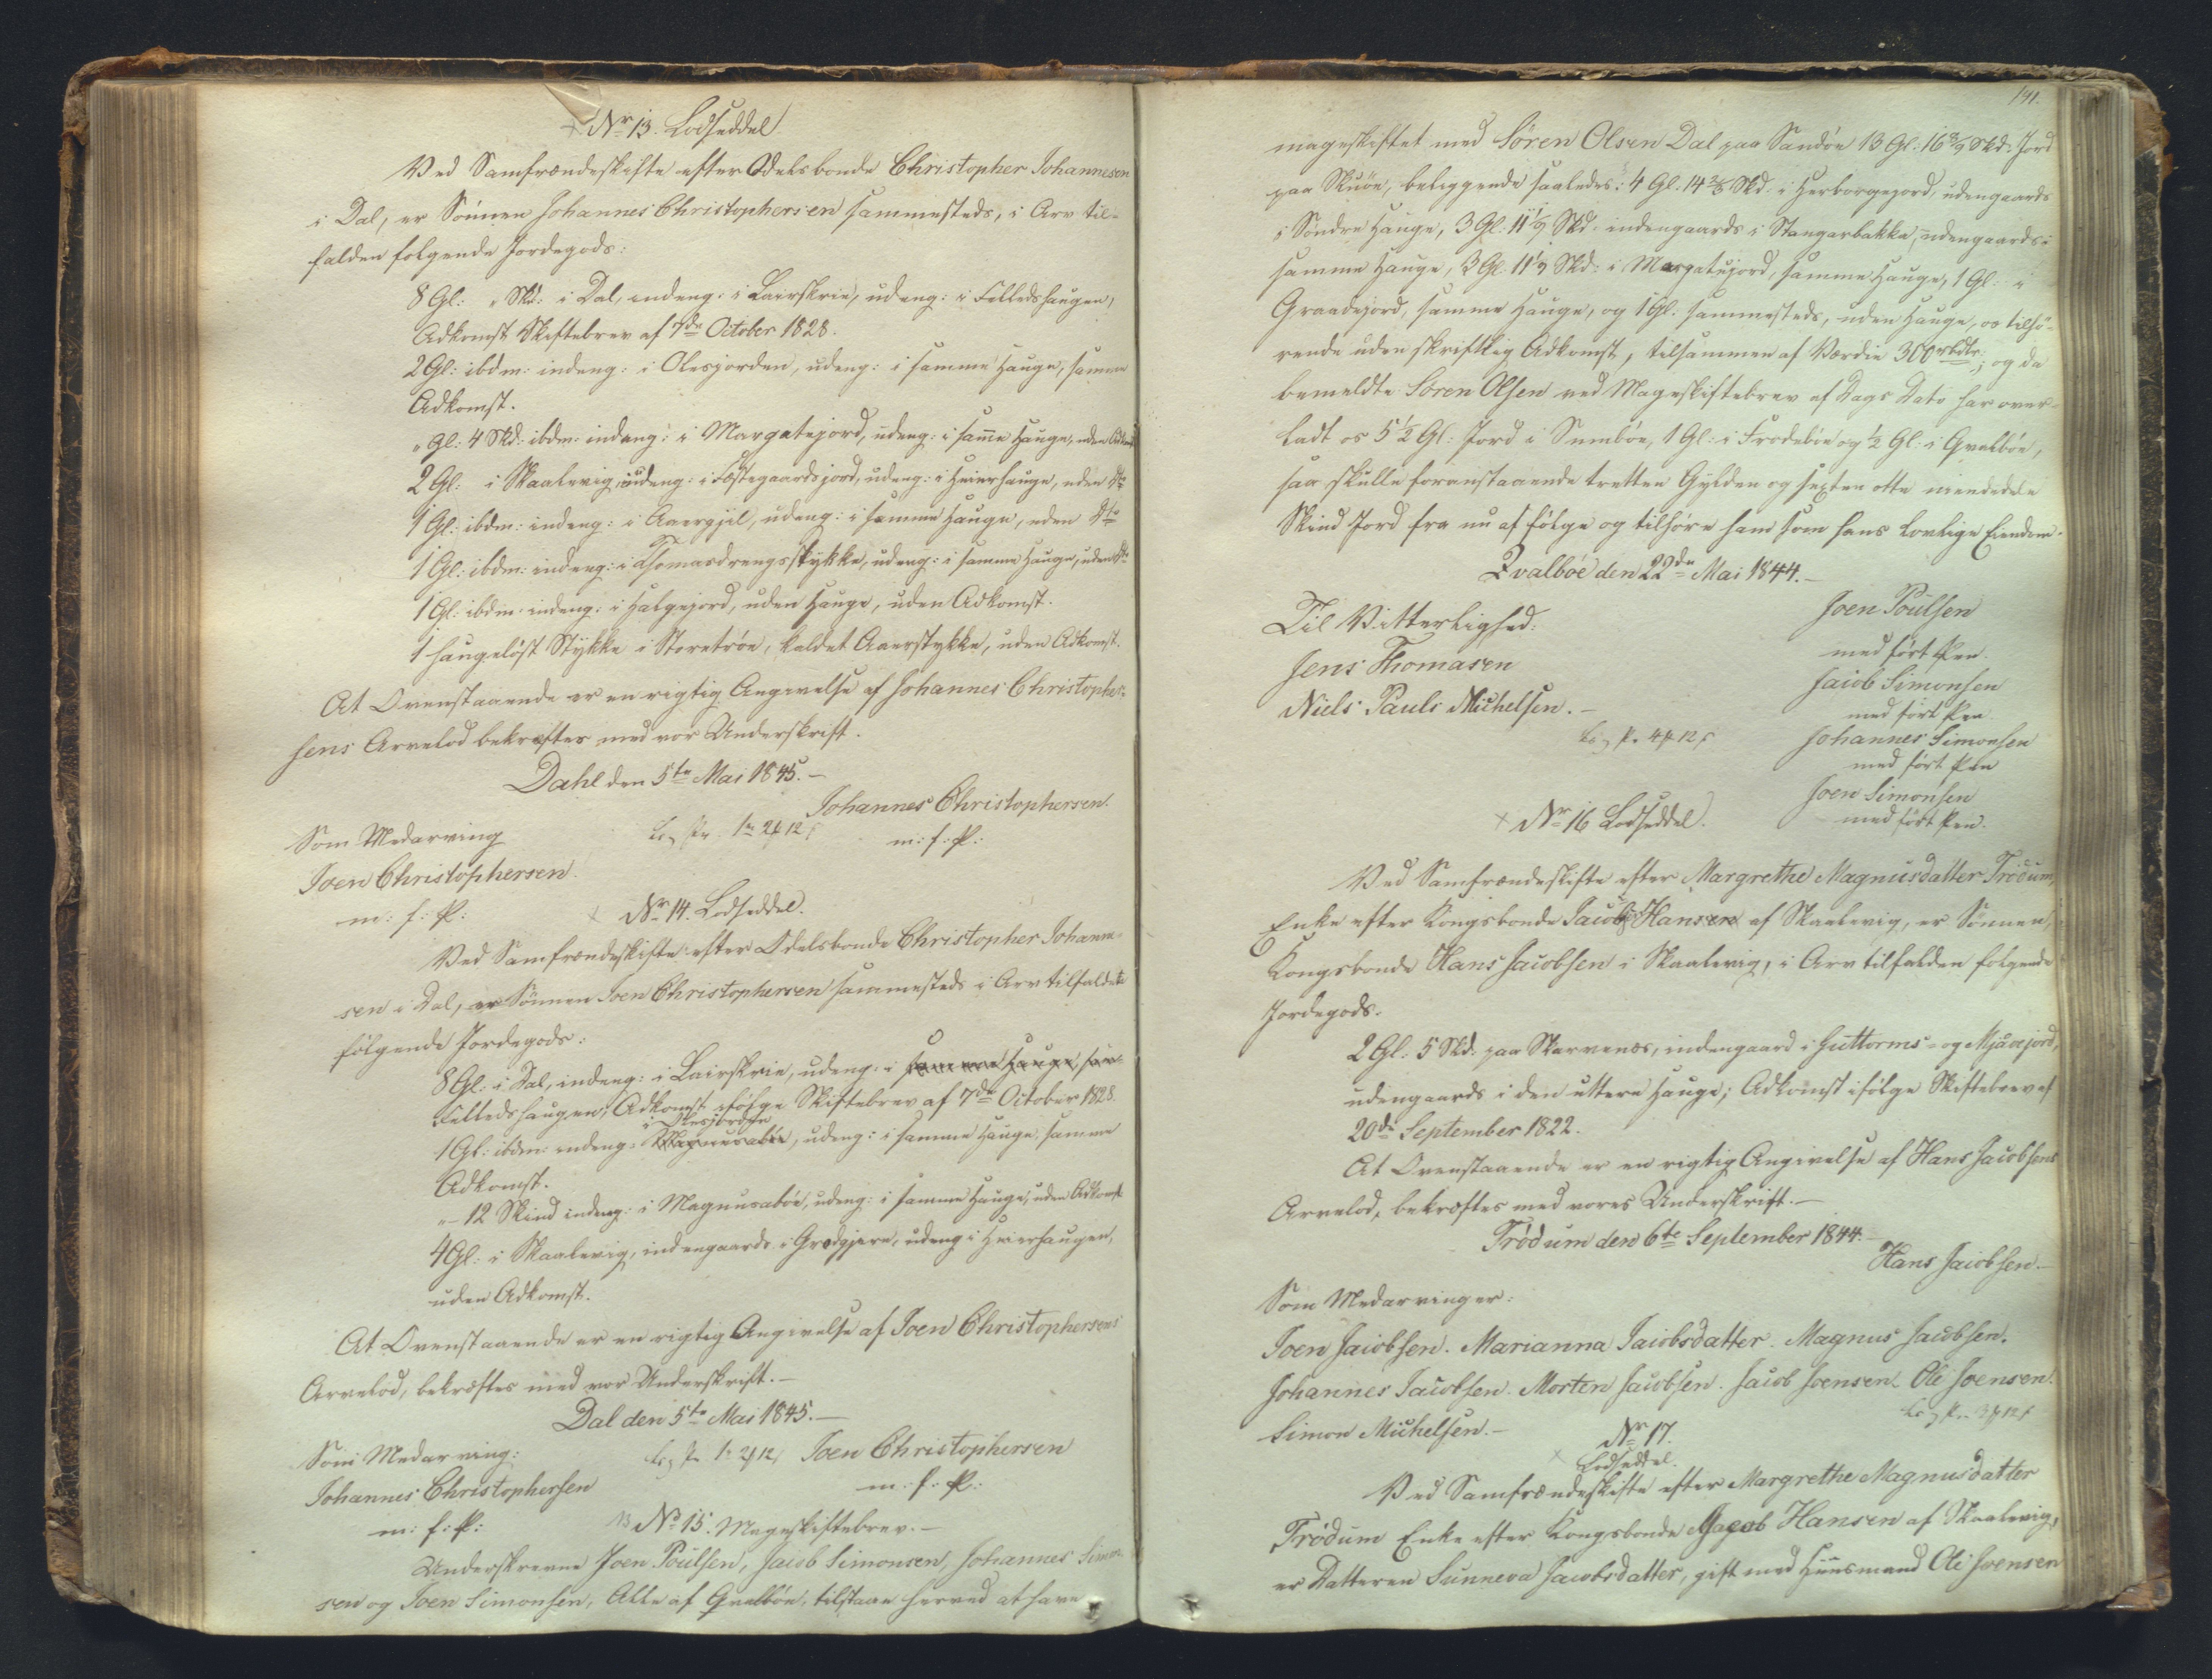 Nr 13. Lodseddel
Ved Samfrændeskifte efter Odelsbonde Christopher Johannesen
i Dal, er Sönnen Johannes Christophersen sammesteds, i Arv til-
falden følgende Jordegods:
8 Gl: " Skd: i Dal, indeng: i Lairskrin, udeng: i Filledshaugen,
Adkomst Skiftebrev af 7de October 1828.
2 Gl: ibdm: indeng: i Olesjorden, udeng: i samme Hauge, samme
Adkomst.
" Gl: 4 Skd: ibdm: indeng: i Margatejord, udeng: i samme Hauge, uden Adkomst
2 Gl: i Skaalevig, indeng: i Fæstegaardsjord, udeng: i Heierhauge, uden Dto
1 Gl: ibdm: indeng: i Aaergjil, udeng: i samme Hauge, uden Dto
1 Gl: ibdm: indeng: i Thomasdrengsstykke, udeng: i samme Hauge, uden Dto
1 Gl: ibdm: indeng: i Halgejord, uden Hauge, uden Adkomst.
1 haugeløst Stykke i Storetröe, kaldet Aaerstykke, uden Adkomst.
At Ovenstaaende er en rigtig Angivelse af Johannes Christopher-
sens Arvelod bekræftes med vor Underskrift.
Dahl den 5te Mai 1845.-
Johannes Christophersen.
m: f: P:
Som Medarving
Joen Christophersen.
m: f: P:
Nr 14. Lodseddel.
Ved Samfrændeskifte efter Odelsbonde Christopher Johanne-
sen i Dal, er Sönnen Joen Christophersen sammesteds i Arv tilfaldet
følgende Jordegods:
8 Gl: i Dal, indeng: i Lairskrin, udeng: i samme Hauge, sam-
Filledshaugen, Adkomst ifølge Skiftebrev af 7de October 1828.
i Olesjorden
1 Gl: ibdm: indeng: Magnusabøe, udeng: i samme Hauge, samme
Adkomst.
" - 12 Skind indeng: i Magnusabøe, udeng: i samme Hauge, uden Adkomst
4 Gl: i Skaalevig, indengaards i Grødgjera, udeng i Heierhaugen,
uden Adkomst.
At Ovenstaaende er en rigtig Angivelse af Joen Christophersens
Arvelod, bekræftes med vor Underskrift.-
Dal den 5te Mai 1845.-
Joen Christophersen
m: f: P:
Som Medarving:
Johannes Christophersen
m: f: P:
No 15. Mageskiftebrev.-
Underskrevne Joen Poulsen, Jacob Simonsen, Johannes Simon-
sen og Joen Simonsen, Alle af Qvalböe, tilstaae herved at have
191.
mageskiftet med Søren Olsen Dal paa Sandöe 13 Gl: 16 8/9 Skd: Jord
paa Skuöe, beliggende saaledes: 4 Gl. 14 Skd: i Herborgejord, udengaards
i Søndre Hauge, 3 Gl: 11 1/9 Skd: indengaards i Stangarbakka, udengaards i
samme Hauge, 3 Gl. 11 1/9 Skd: i Margatujord, samme Hauge, 1 Gl: i
Graadejord, samme Hauge, og 1 Gl. sammesteds, uden Hauge, os tilhö-
rende uden skriftlig Adkomst, tilsammen af Værdie 300 rbdlr; og da
bemeldte Søren Olsen ved Mageskiftebrev af Dags Dato har over-
ladt os 5 1/2 Gl: Jord i Sumböe, 1 Gl: i Frodeböe og 1/2 Gl: i Qvalböe,
saa skulle foranstaaende tretten Gylden og sexten otte niendedele
Skind Jord fra nu af følge og tilhöre ham som hans lovlige Eiendom.
Qvalböe den 22de Mai 1844.-
Joen Poulsen
med ført Pen.
Jacob Simonsen
med ført Pen
Johannes Simonsen
med ført Pen
Joen Simonsen
med ført Pen.
Til Vitterlighed:
Jens Thomasen
Niels Pauli Michelsen.-
Nr 16 Lodseddel.
Ved Samfrændeskifte efter Margrethe Magnusdatter Trödum,
Enke efter Kongsbonde Jacob Hansen af Skaalevig, er Sönnen,
Kongsbonde Hans Jacobsen i Skaalevig, i Arv tilfalden følgende
Jordegods.
2 Gl: 5 Skd: paa Skarvanæs, indengaard i Guttorms- og Mjaavejord,
udengaards i den uttere Hauge; Adkomst ifølge Skiftebrev af
20de September 1822.
At Ovenstaaende er en rigtig Angivelse af Hans Jacobsens
Arvelod, bekræftes med vores Underskrift.-
Trödum den 6te September 1844.-
Hans Jacobsen.-
Som Medarvinger:
Joen Jacobsen. Marianna Jacobsdatter. Magnus Jacobsen.
Johannes Jacobsen. Morten Jacobsen. Jacob Joensen. Ole Joensen.
Simon Michelsen.-
Nr 17.
Lodseddel.
Ved Samfrændeskifte efter Margrethe Magnusdatter
Trödum Enke efter Kongsbonde Jacob Hansen af Skaalevig,
er Datteren Sunneva Jacobsdatter, gift med Huusmand Ole Joensen